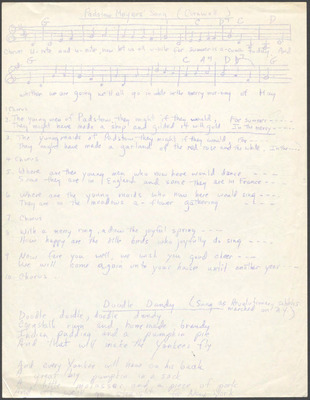 Padstow Mayers Song (Cornwall)
G G D D7 G C D
Chorus Unite and unite, now let us all unite for summer is a-coming today And
G C A7 D G
whither we are going we'll all go in white in the merry morning of May
1 Chorus
2. The young men of Padstow—they might if they would, For summer ----
They might have made a ship and gilded it with gold In the merry ----
3. The young maids of Padstow—they might if they would
They might have made a garland of the red rose and the white In the ---
4. Chorus
5. Where are those young men who now here would dance ----
Some they are in England and some they are in France ---
6. Where are the young maids who now here would sing ----
They are in the meadows a-flower gathering ----
7. Chorus
8. With a merry ring, adieu the joyful spring ----
How happy are the little birds who joyfully do sing ----
9. Now fare you well, we wish you good cheer ---
We will come again unto your house until another year ---
10. Chorus.
Doodle Dandy
Doodle doodle, doodle dandy
Cornstalk rum and homemade brandy
Indian pudding and a pumpkin pie
And that will make the Yankees fly
And every Yankee will have on his back
A great big pumpkin in a sack
molasses, and a piece of pork